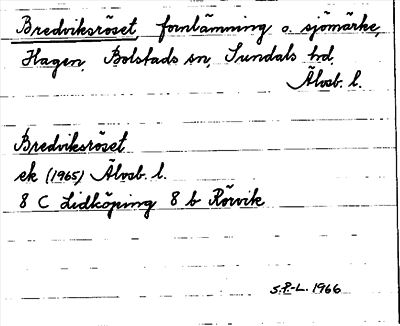 Bredviksröset, fornlämning o. sjömärke,
Hagen, Bolstads sn, Sundals hd,
Älvsb. l.
Bredviksröset
ek (1965) Älvsb. l.
8 C Lidköping 8 b Rörvik
S.P.-L. 1966